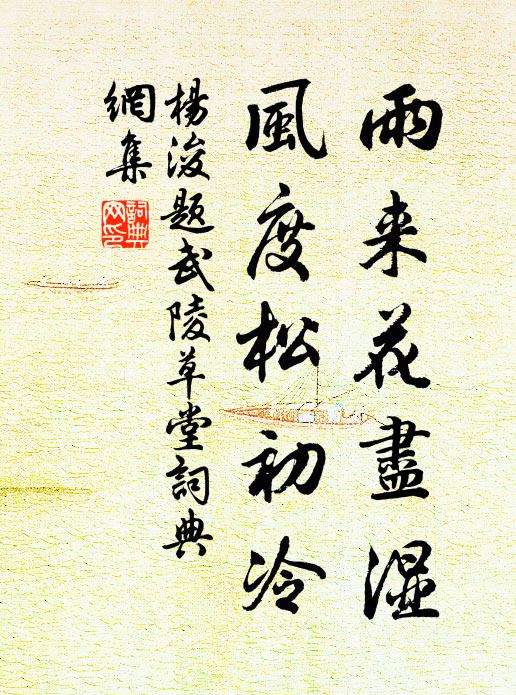 雨来花盡濕
風度松初冷
楊浚題武陵草堂詞典
網集
詞典
网印